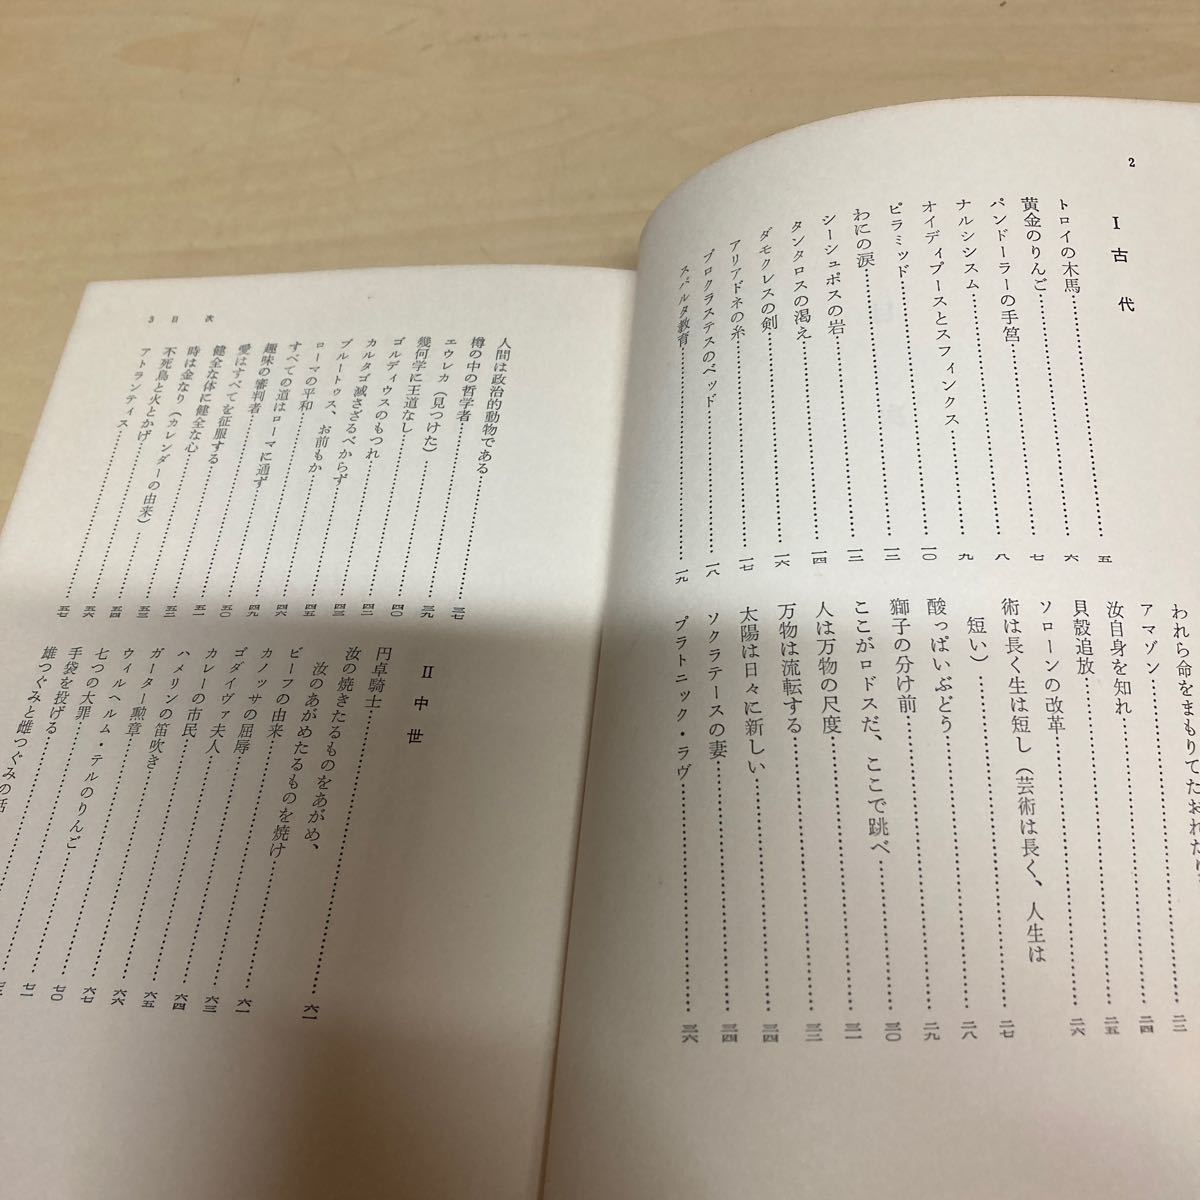 2
I 古代
トロイの木馬……五
黄金のりんご……六
パンドーラーの手筥……七
ナルシシスム……八
オイディプースとスフィンクス……九
ピラミッド……一〇
わにの涙……一二
シーシュポスの岩……一三
タンタロスの渇え……一四
ダモクレスの剣……一六
アリアドネの糸……一七
プロクラステスのベッド……一八
スパルタ教育……一九
われら命をまもりてたおれたり
アマゾン……二二
汝自身を知れ……二四
貝殻追放……二五
ソローンの改革……二六
術は長く生は短し(芸術は長く、人生は
短い)……二七
酸っぱいぶどう……二八
獅子の分け前……二九
ここがロドスだ、ここで跳べ……三〇
人は万物の尺度……三一
万物は流転する……三二
太陽は日々に新しい……三四
ソクラテースの妻……三四
プラトニック・ラヴ……三六
人間は政治的動物である……三七
樽の中の哲学者……三九
エウレカ(見つけた)……四〇
幾何学に王道なし……四二
ゴルディウスのもつれ……四三
カルタゴ滅さざるべからず……四五
ブルートゥス、お前もか……四六
ローマの平和……四九
すべての道はローマに通ず……五〇
趣味の審判者……五一
愛はすべてを征服する……五二
健全な体に健全な心……五三
時は金なり(カレンダーの由来)……五四
不死鳥と火とかげ……五六
アトランティス……五七
II 中世
円卓騎士……六一
汝の焼きたるものをあがめ、
汝のあがめたるものを焼け……六一
ビーフの由来……六三
カノッサの屈辱……六四
ゴダイヴァ夫人……六五
カレーの市民……六六
ハメリンの笛吹き……六七
ガーター勲章……七〇
ウィルヘルム・テルのりんご……七一
七つの大罪
手袋を投げる
雄つぐみと雌つぐみの話
3 目次